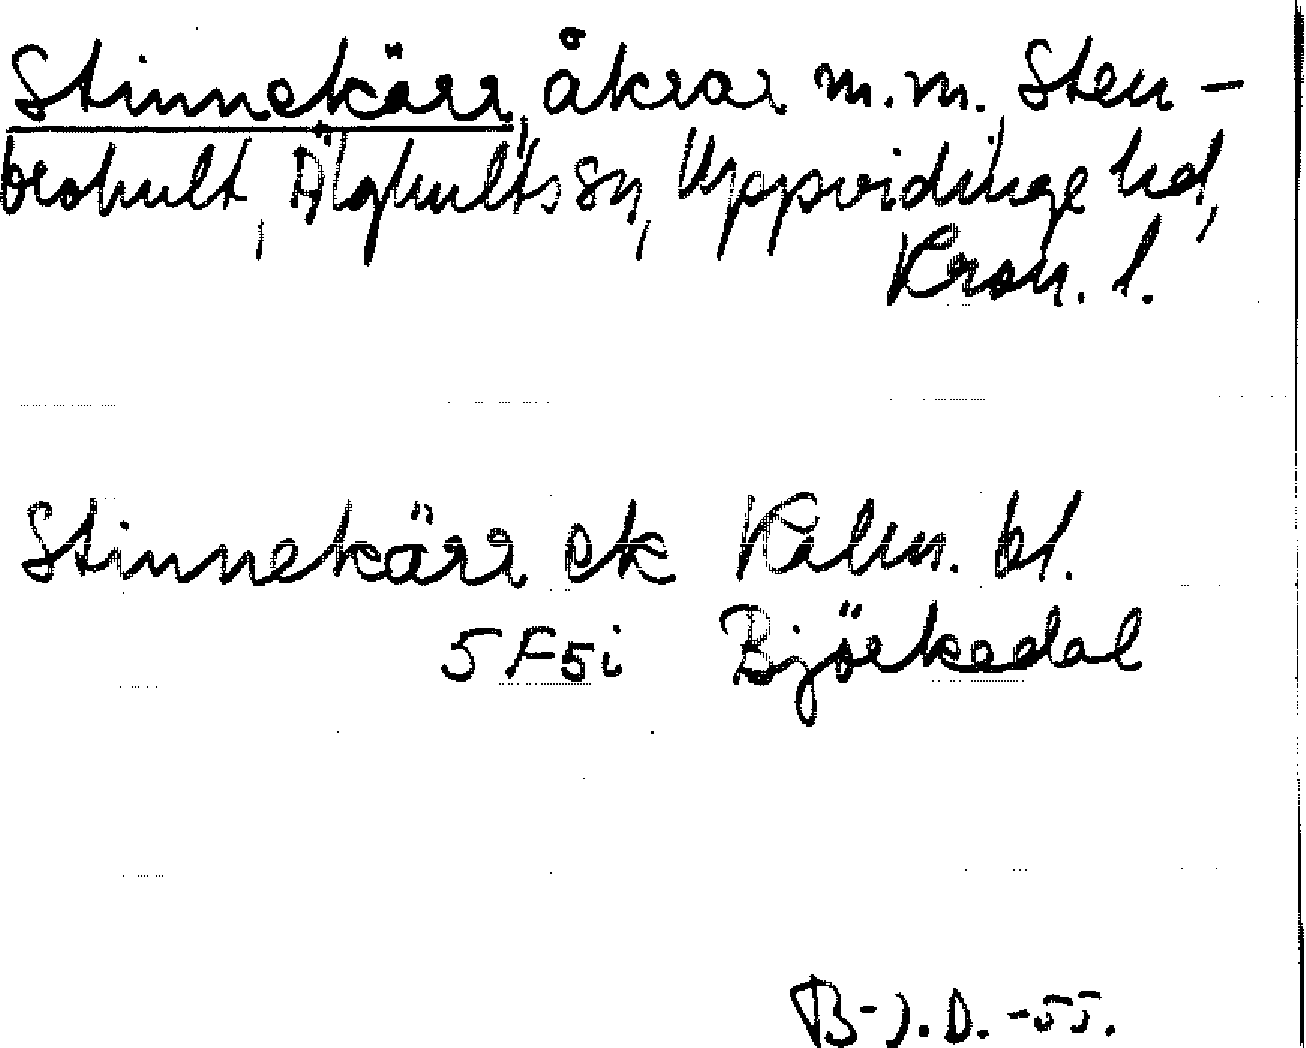 Stinnekärr, åkrar m.m. Sten-
brohult, Älghults sn, Uppvidinge hd,
Kron. l.
Stinnekärr ek Kalm. bl.
5F5i Björkedal
B-J.D. -55.